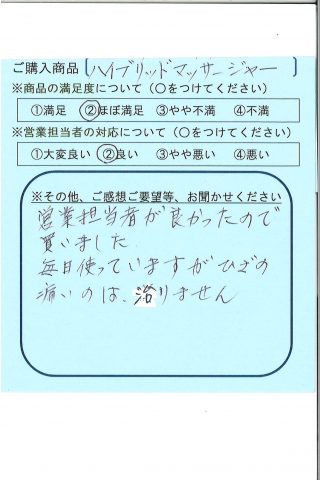 ご購入商品 [ハイブリッドマッサージャー]
※商品の満足度について(○をつけてください)
①満足 ②ほぼ満足 ③やや不満 ④不満
※営業担当者の対応について(○をつけてください)
①大変良い ②良い ③やや悪い ④悪い
※その他、ご感想ご要望等、お聞かせください
営業担当者が良かったので
買いました
毎日使っていますがひざの
痛いのは、治りません